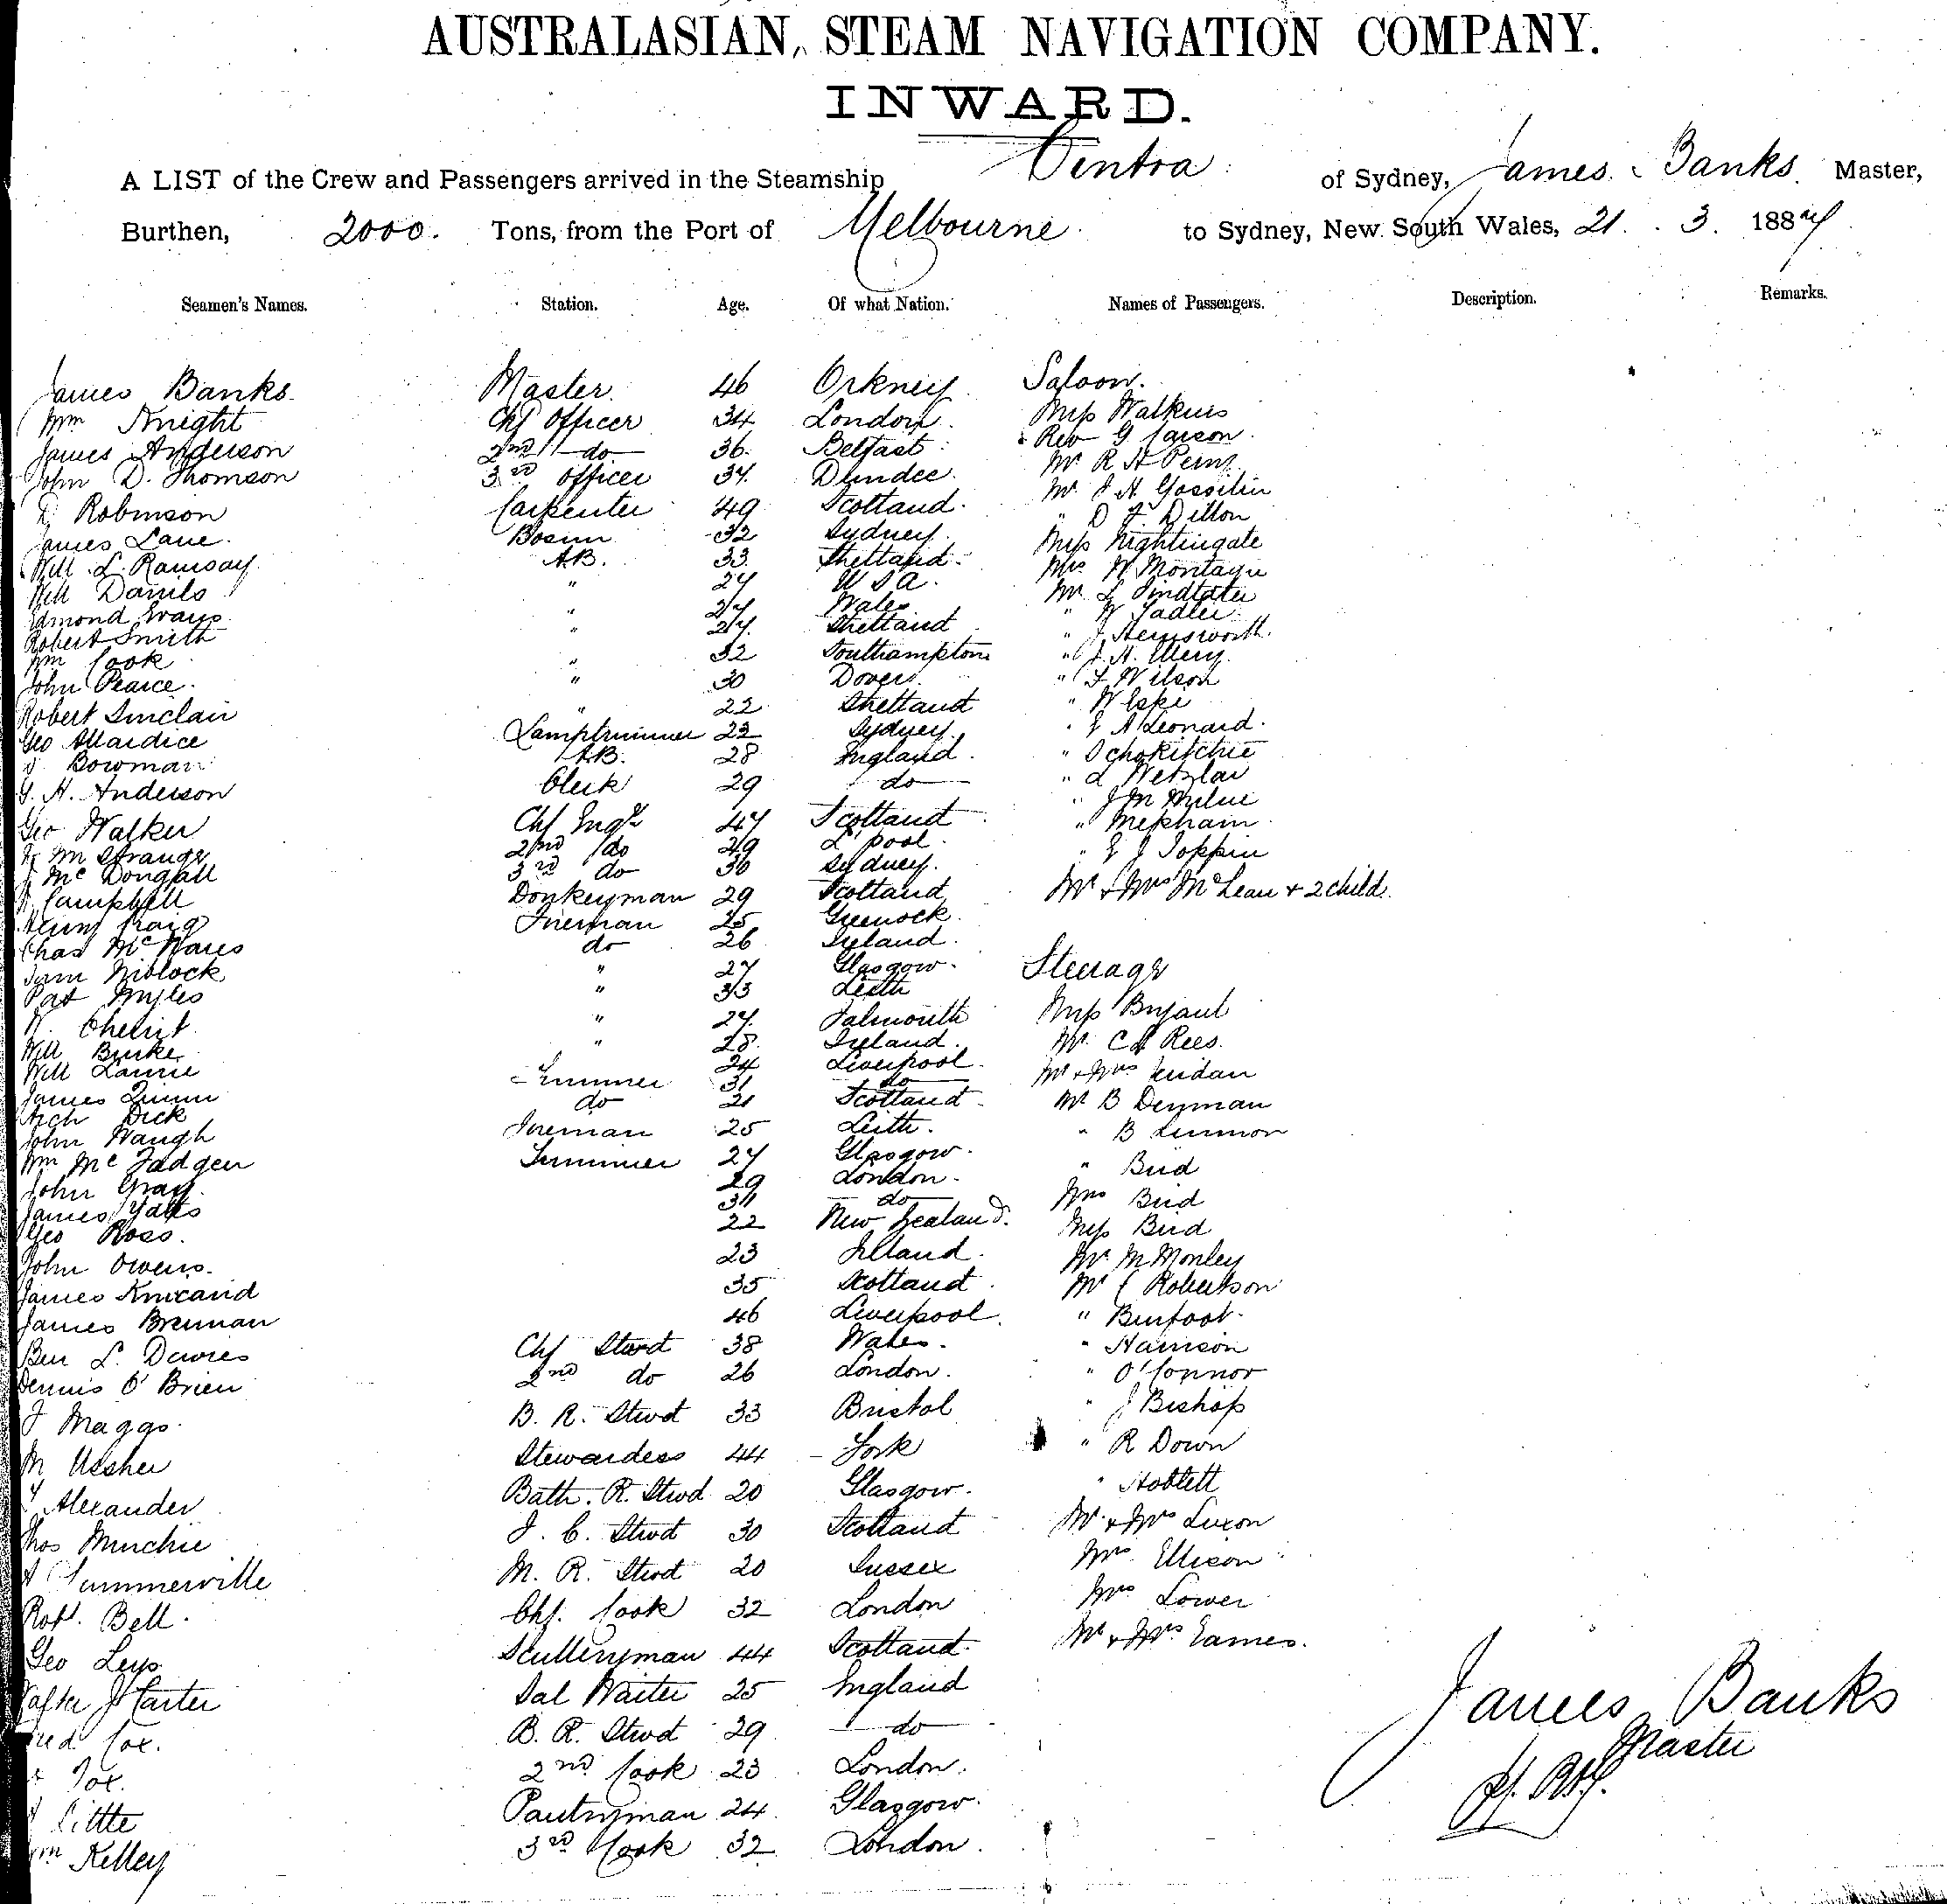 AUSTRALASIAN STEAM NAVIGATION COMPANY.
INWARD.
A LIST of the Crew and Passengers arrived in the Steamship Centra of Sydney, James Banks Master,
Burthen, 2000. Tons, from the Port of Melbourne to Sydney, New South Wales, 21. 3. 1887
Seamen's Names. Station. Age. Of what Nation. Names of Passengers. Description. Remarks.
James Banks Master 46 Orkney Saloon.
Wm Knight Chf Officer 34 London Miss Watkins
James Anderson 2nd do 36 Belfast Rev G Carson
John D. Thomson 3rd Officer 34 Dundee Mr R H
Robinson Carpenter 49 Scotland Mr J H Gosselin
James Lane Bosun 32 Sydney " D F Dillon
Will L. Ramsay AB. 33 Shetland Miss Nightingale
Will Danils " 24 USA. Mrs W Montagu
Edmond Evans " 27 Wales Mr
Robert Smith " 27 Shetland " W Sadler
Wm Cook " 32 Southampton " J. Hemsworth.
John Pearce " 30 Dover " J. H.
Robert Sinclair " 22 Shetland " F Wilson
Geo Allardice Lamptrimmer 22 Sydney " W
J. Bowman AB. 28 England " E A Leonard
J. H. Anderson Clerk 29 do "
Geo Walker Chf Engr 47 Scotland " L Wetzlar
Wm Strange 2nd do 29 L'pool " J M Milne
J McDongall 3rd do 30 Sydney. " Mepham
Campbell Donkeyman 29 Scotland " E J Toppin
Henry Craig Fireman 25 Greenock Mr & Mrs McLean & 2 child.
Chas McWares do 26 Ireland.
Sam Niblock " 27 Glasgow Steerage
Pat Myles " 33 Leith
" 27 Falmouth Miss Bryant
Will Burke " 28 Ireland. Mr C A Rees.
Will Laurie Trimmer 24 Liverpool Mr & Mrs
James Quinn do 31 do Mr B Denman
Arch Dick 21 Scotland " B Lennon
John Waugh Fireman 25 Leith. " Bird
Wm McFadgen Trimmer 27 Glasgow Mrs Bird
John Gray 29 London Miss Bird
James Yates 31 do Mr M Monley
Geo Ross. 22 New Zealand. Mr C Robertson
John Owens 23 Ireland. " Burfoot
James Kincaid 35 Scotland " Harrison
James Brennan 46 Liverpool " O'Connor
Ben L. Davies Chf Stwrd 38 Wales " J Bishop
Dennis O'Brien 2nd do 26 London. " R Down
J Maggs B. R. Stwd 33 Bristol " Noblett
M Ussher Stewardess 44 York Mr & Mrs Luxon
Alexander Bath. R. Stwd 20 Glasgow. Mrs Ellison
Thos Murchie J. C. Stwd 30 Scotland Mrs Lower
Summerville M. R. Stwd 20 Sussex Mr & Mrs Eames.
Robt. Bell Chf. Cook 32 London
Geo Leys Sculleryman 44 Scotland
Walter J Carter Sal Waiter 25 England
Fred Cox. B. R. Stwd 29 do
Fox. 2nd Cook 23 London.
Little Pantryman 24 Glasgow
Wm Kelley 3rd Cook 32 London
James Banks
Master